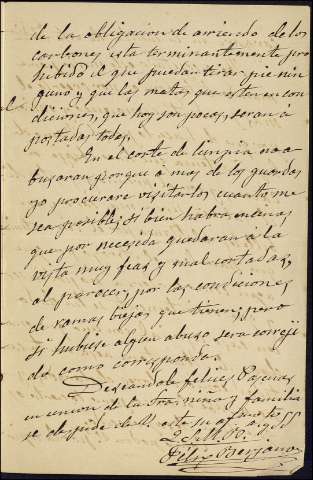 de la obligacion de arriendo de los
carbones esta terminantemente pro
hibido el que puedan tirar pie nin
guno y que las matas que esten en con
diciones, que hoy son pocas, seran a
postadas todas.
En el corte de limpia no a
busaran porque a mas de los guardas
yo procurare visitarlos cuanto me
sea posible, si bien habra encinas
que por necesida quedaran á la
vista muy feas y mal cortadas,
al parecer, por las condiciones
de ramas bajas que tienen, pero
si hubiese algun abuso sera correji
do como corresponda.
Deseandole felices Pascuas
en union de la Sra. niño y familia
se despide de V. este su
Q. S. M. B.
Felix Berjano